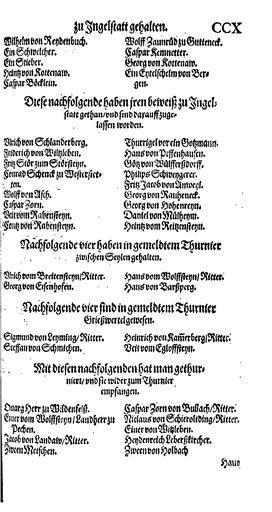 zu Jngelstatt gehalten. CCX
Wilhelm von Reydenbuch.
Ein Schweicher.
Ein Stieber.
Heintz von Kottenaw.
Caspar Böcklein.
Wolff Zaunrüd zu Gutteneck.
Caspar Kemnetter.
Georg von Kottenaw.
Ein Eytelschelm von Bergen.
Diese nachfolgende haben jren beweiß zu Jngel-
statt gethan/vnd sind darauff zuge-
lassen worden.
Vlrich von Schlanderberg.
Friderich von Witzleben.
Fritz Stör zum Störsteyn.
Conrad Schenck zu Westerstet-
ten.
Wolff von Asch.
Caspar Zorn.
Veit vom Rabensteyn.
Contz von Rabensteyn.
Thurrigel vor ein Gotzmann.
Hans von Pessenhausen.
Götz von Wülffersdorff.
Philips Schweygerer.
Fritz Jacob von Anweyl.
Georg von Rauheneck.
Georg von Hohenreyn.
Daniel von Mülheym.
Heintz vom Reitzensteyn.
Nachfolgende vier haben in gemeldtem Thurnier
zwischen Seylen gehalten.
Vlrich von Breitensteyn/Ritter.
Georg von Eisenhofen.
Hans vom Wolffsteyn/Ritter.
Hans von Barßperg.
Nachfolgende vier sind in gemeldtem Thurnier
Grießwertel gewesen.
Sigmund von Leyming/Ritter.
Steffan von Schmichen.
Heinrich von Kam̃erberg/Ritter.
Veit vom Egloffsteyn.
Mit diesen nachfolgenden hat man gethur-
niert/vnd sie wider zum Thurnier
empfangen.
Quarg Herr zu Wildenfelß.
Einer vom Wolffsteyn/Landherr zu
Pechen.
Jacob von Landaw/Ritter.
Zween Metschen.
Caspar Zorn von Bullach/Ritter.
Niclaus von Schierolding/Ritter.
Einer von Witzleben.
Heydenreich Leberßkircher.
Zween von Holbach
Hans